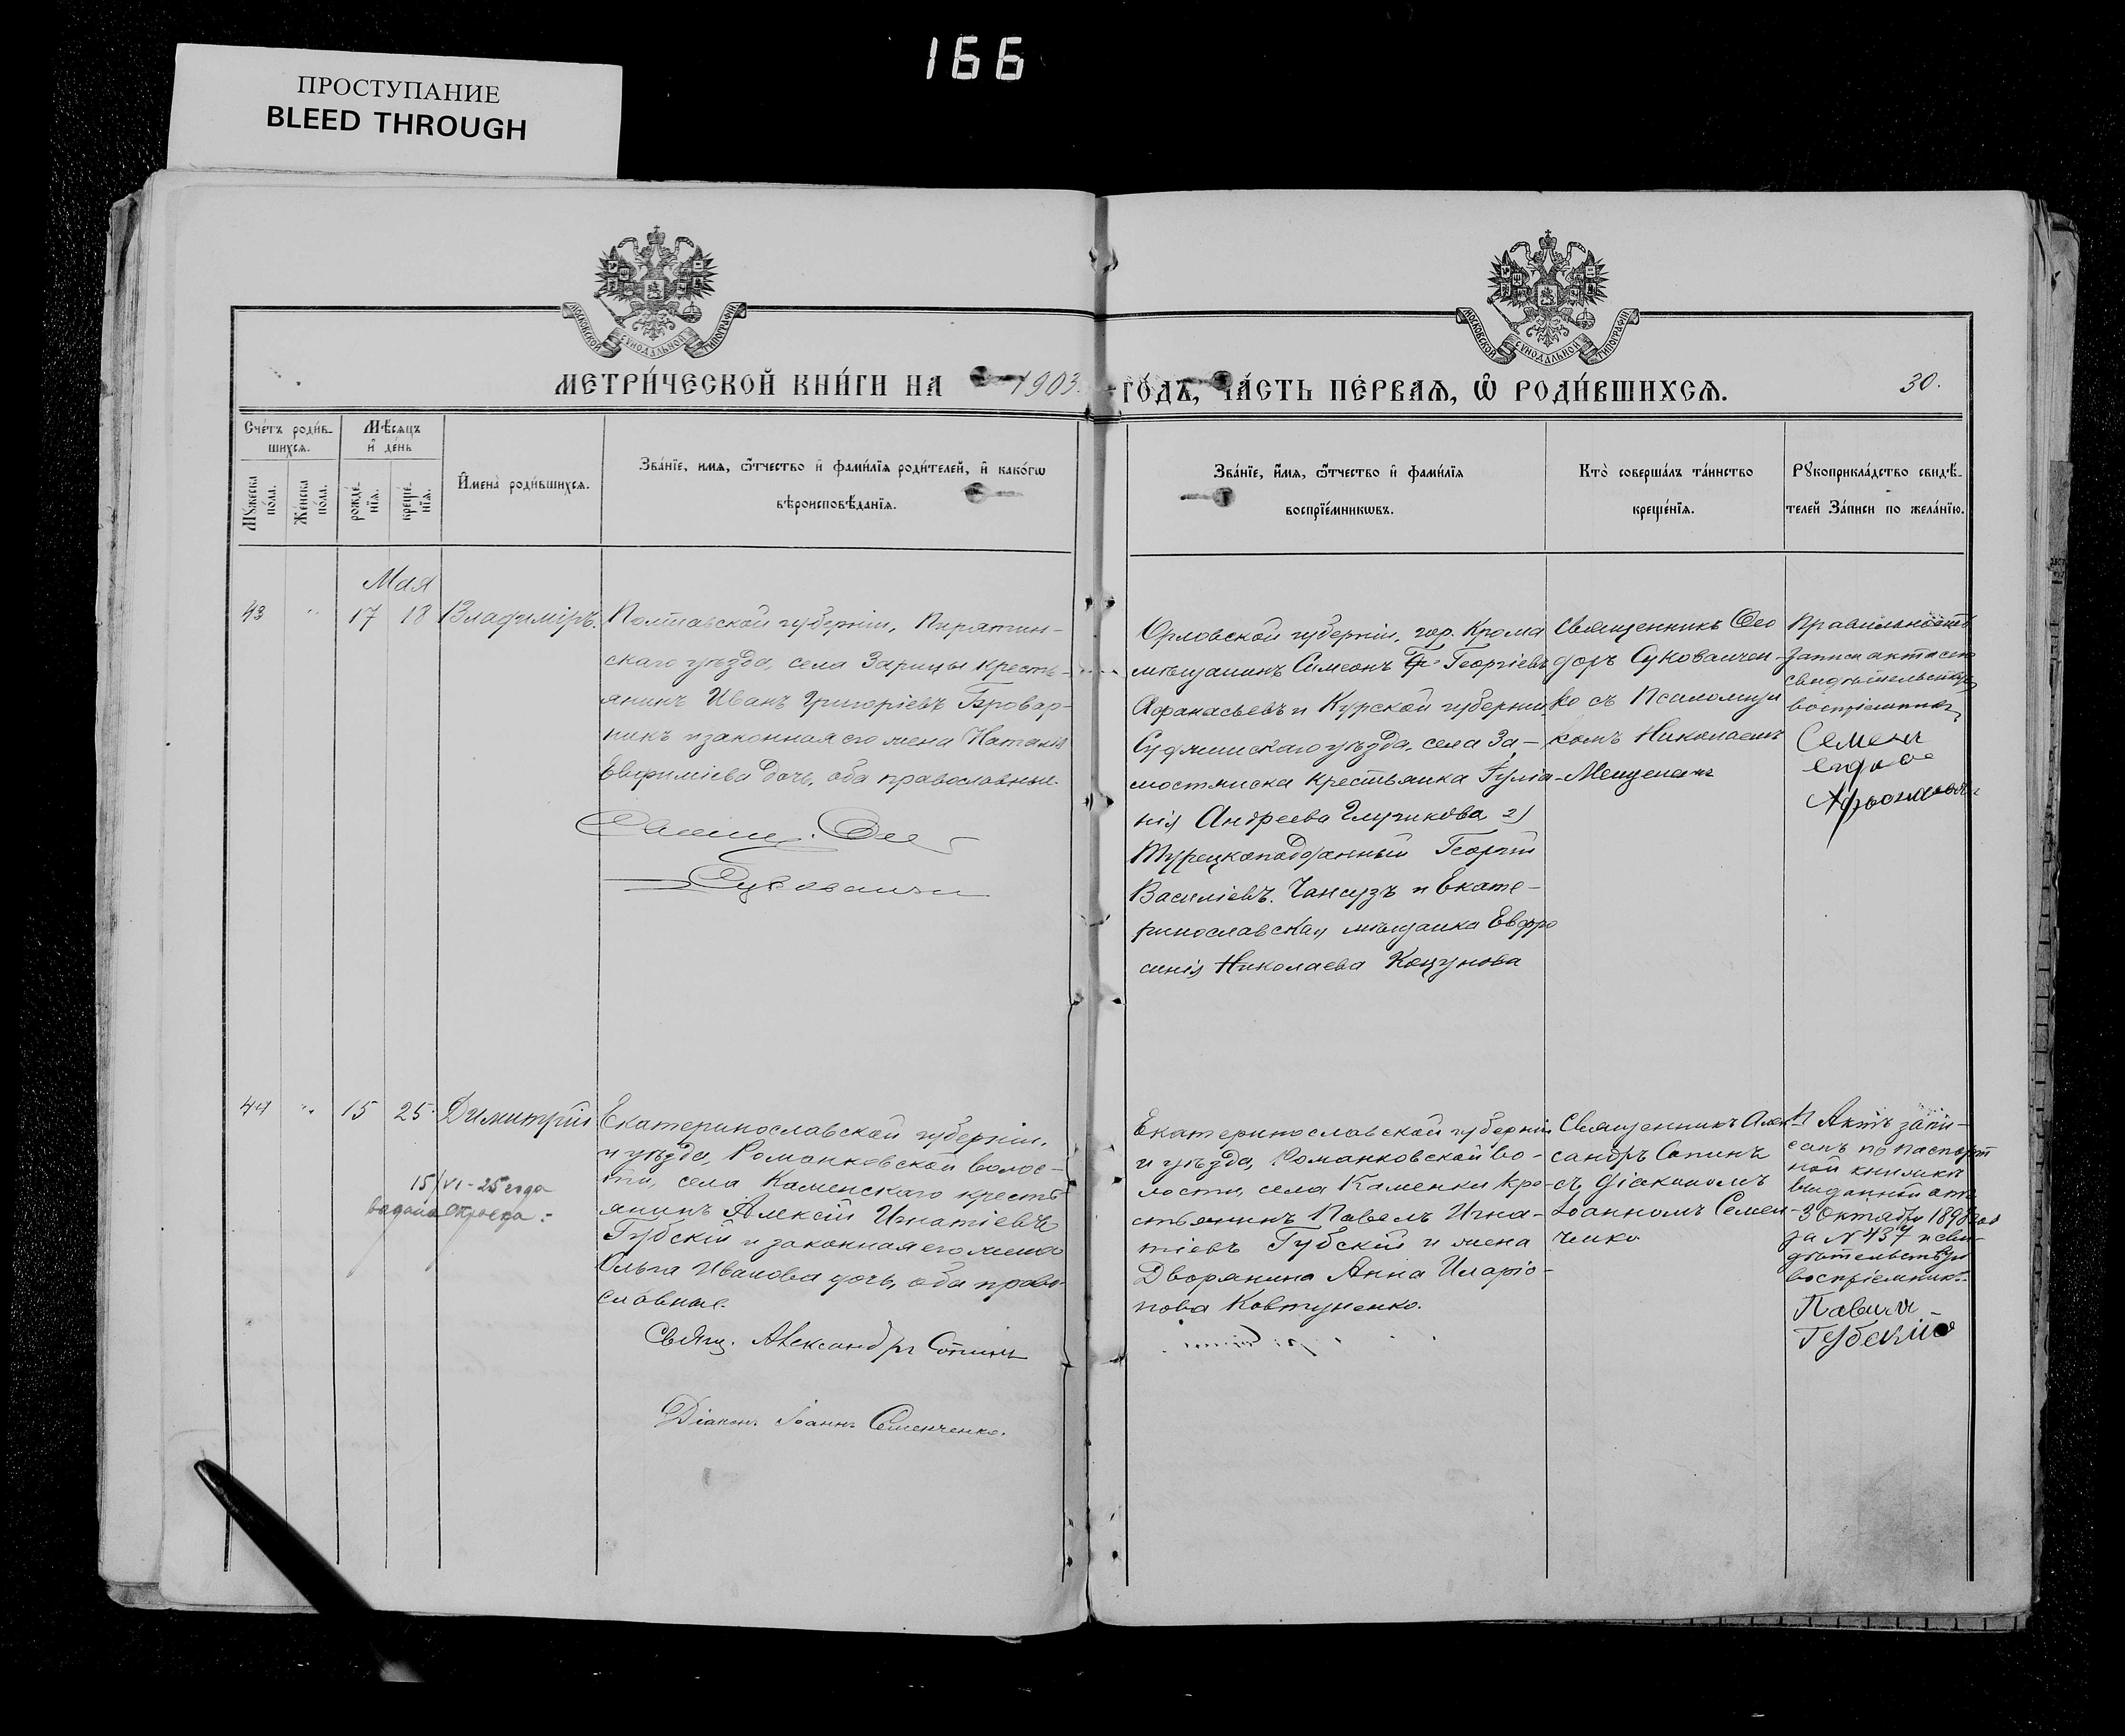 166
ПРОСТУПАНИЕ
BLEED THROUGH
МОСКОВСКОЙ СѴНОДАЛЬНОЙ ТИПОГРАФІИ
МОСКОВСКОЙ СѴНОДАЛЬНОЙ ТИПОГРАФІИ
МЕТРИ́ЧЕСКОЙ КНИ́ГИ НА 1903. ГО́ДЪ, ЧА́СТЬ ПЕ́РВАѦ, Ѡ҆ РОДИ́ВШИХСѦ.
30.
Сче́тъ роди́в-
шихсѧ.
Мꙋжеска по́ла.
Же́нска по́ла.
Мѣ́сѧцъ
и҆ де́нь
рожде́-
нїѧ.
креще́-
нїѧ.
И҆мена̀ роди́вшихсѧ.
Зва́нїе, имѧ, ѻ҆́тчество и҆ фами́лїѧ роди́телей, и҆ како́гѡ
вѣроисповѣ́данїѧ.
Зва́нїе, и҆́мѧ, ѻ҆́тчество и҆ фами́лїѧ
воспрїе́мникѡвъ.
Кто̀ соверша́лъ та́инство
креще́нїѧ.
Рꙋкоприкла́дство свидѣ́-
телей За́писи по жела́нїю.
Мая
43 " 17 18 Владиміръ.
Полтавской губерніи, Пирятин-
скаго уѣзда, села Зарицы кресть-
янинъ Иванъ Григоріевъ Бровар-
никъ и законная его жена Наталія
Евфиміева дочь, оба православные.
Свящ. Ѳео
Орловской губерніи, гор. Крома
мѣщанинъ Симеонъ Георгіевъ
Афанасьевъ и Курской губерніи
Суджинскаго уѣзда, села За-
мостянска крестьянка Іулiа-
нія Андреева Глушкова 2)
Турецкоподданный Георгій
Василіевъ и Екате-
ринославская мѣщанка Евфро
синія Николаева Коцунова
Священникъ Ѳео
доръ Суковаченко-
ко съ Псаломщи
комъ Николаемъ
Правильность
записи акта сего
свидѣтельствую
воспріемникъ
Семенъ
44 " 15 25 Димитрій
15/VI-25 года
выдана
Екатеринославской губерніи,
и уѣзда, Романковской волос-
ти, села Каменскаго кресть
янинъ Алексій Игнатіевъ
Губскій и законная его жена
Ольга Иванова дочь, оба право-
славные.
Свящ. Александръ Сопинъ
Діаконъ Іоаннъ Семенченко.
Екатеринославской губерніи
и уѣзда, Романковской во-
лости, села Каменки кре-
стьянинъ Павелъ Игна-
тіевъ Губскій и жена
Дворянина Анна Иларіо-
нова Ковтуненко.
Священникъ Алек
сандръ Сопинъ
съ діакономъ
Іоанномъ Семен-
ченко
Актъ запи-
санъ по паспорт
ной книжкѣ
выданной отъ
3 Октября 1898 года
за № 437 и сви-
дѣтельствую
воспріемникъ:
Павелъ
Губскій